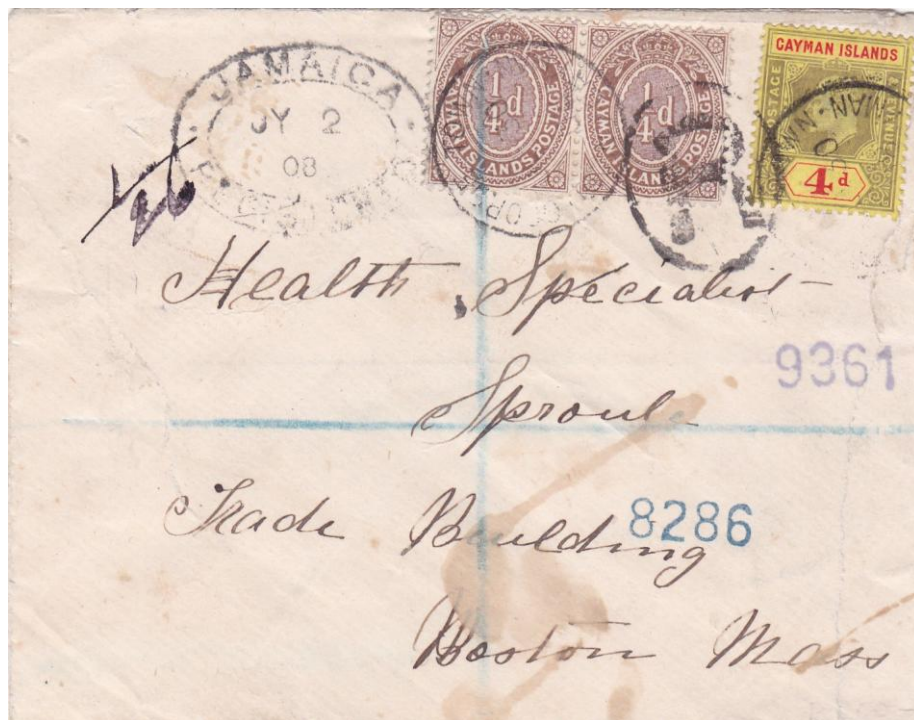 JAMAICA
JY 2
08
¼d
CAYMAN ISLANDS POSTAGE
¼d
CAYMAN ISLANDS POSTAGE
CAYMAN ISLANDS
POSTAGE
REVENUE
4d
Health Specialist
Sproule
9361
Trade Building
8286
Boston Mass